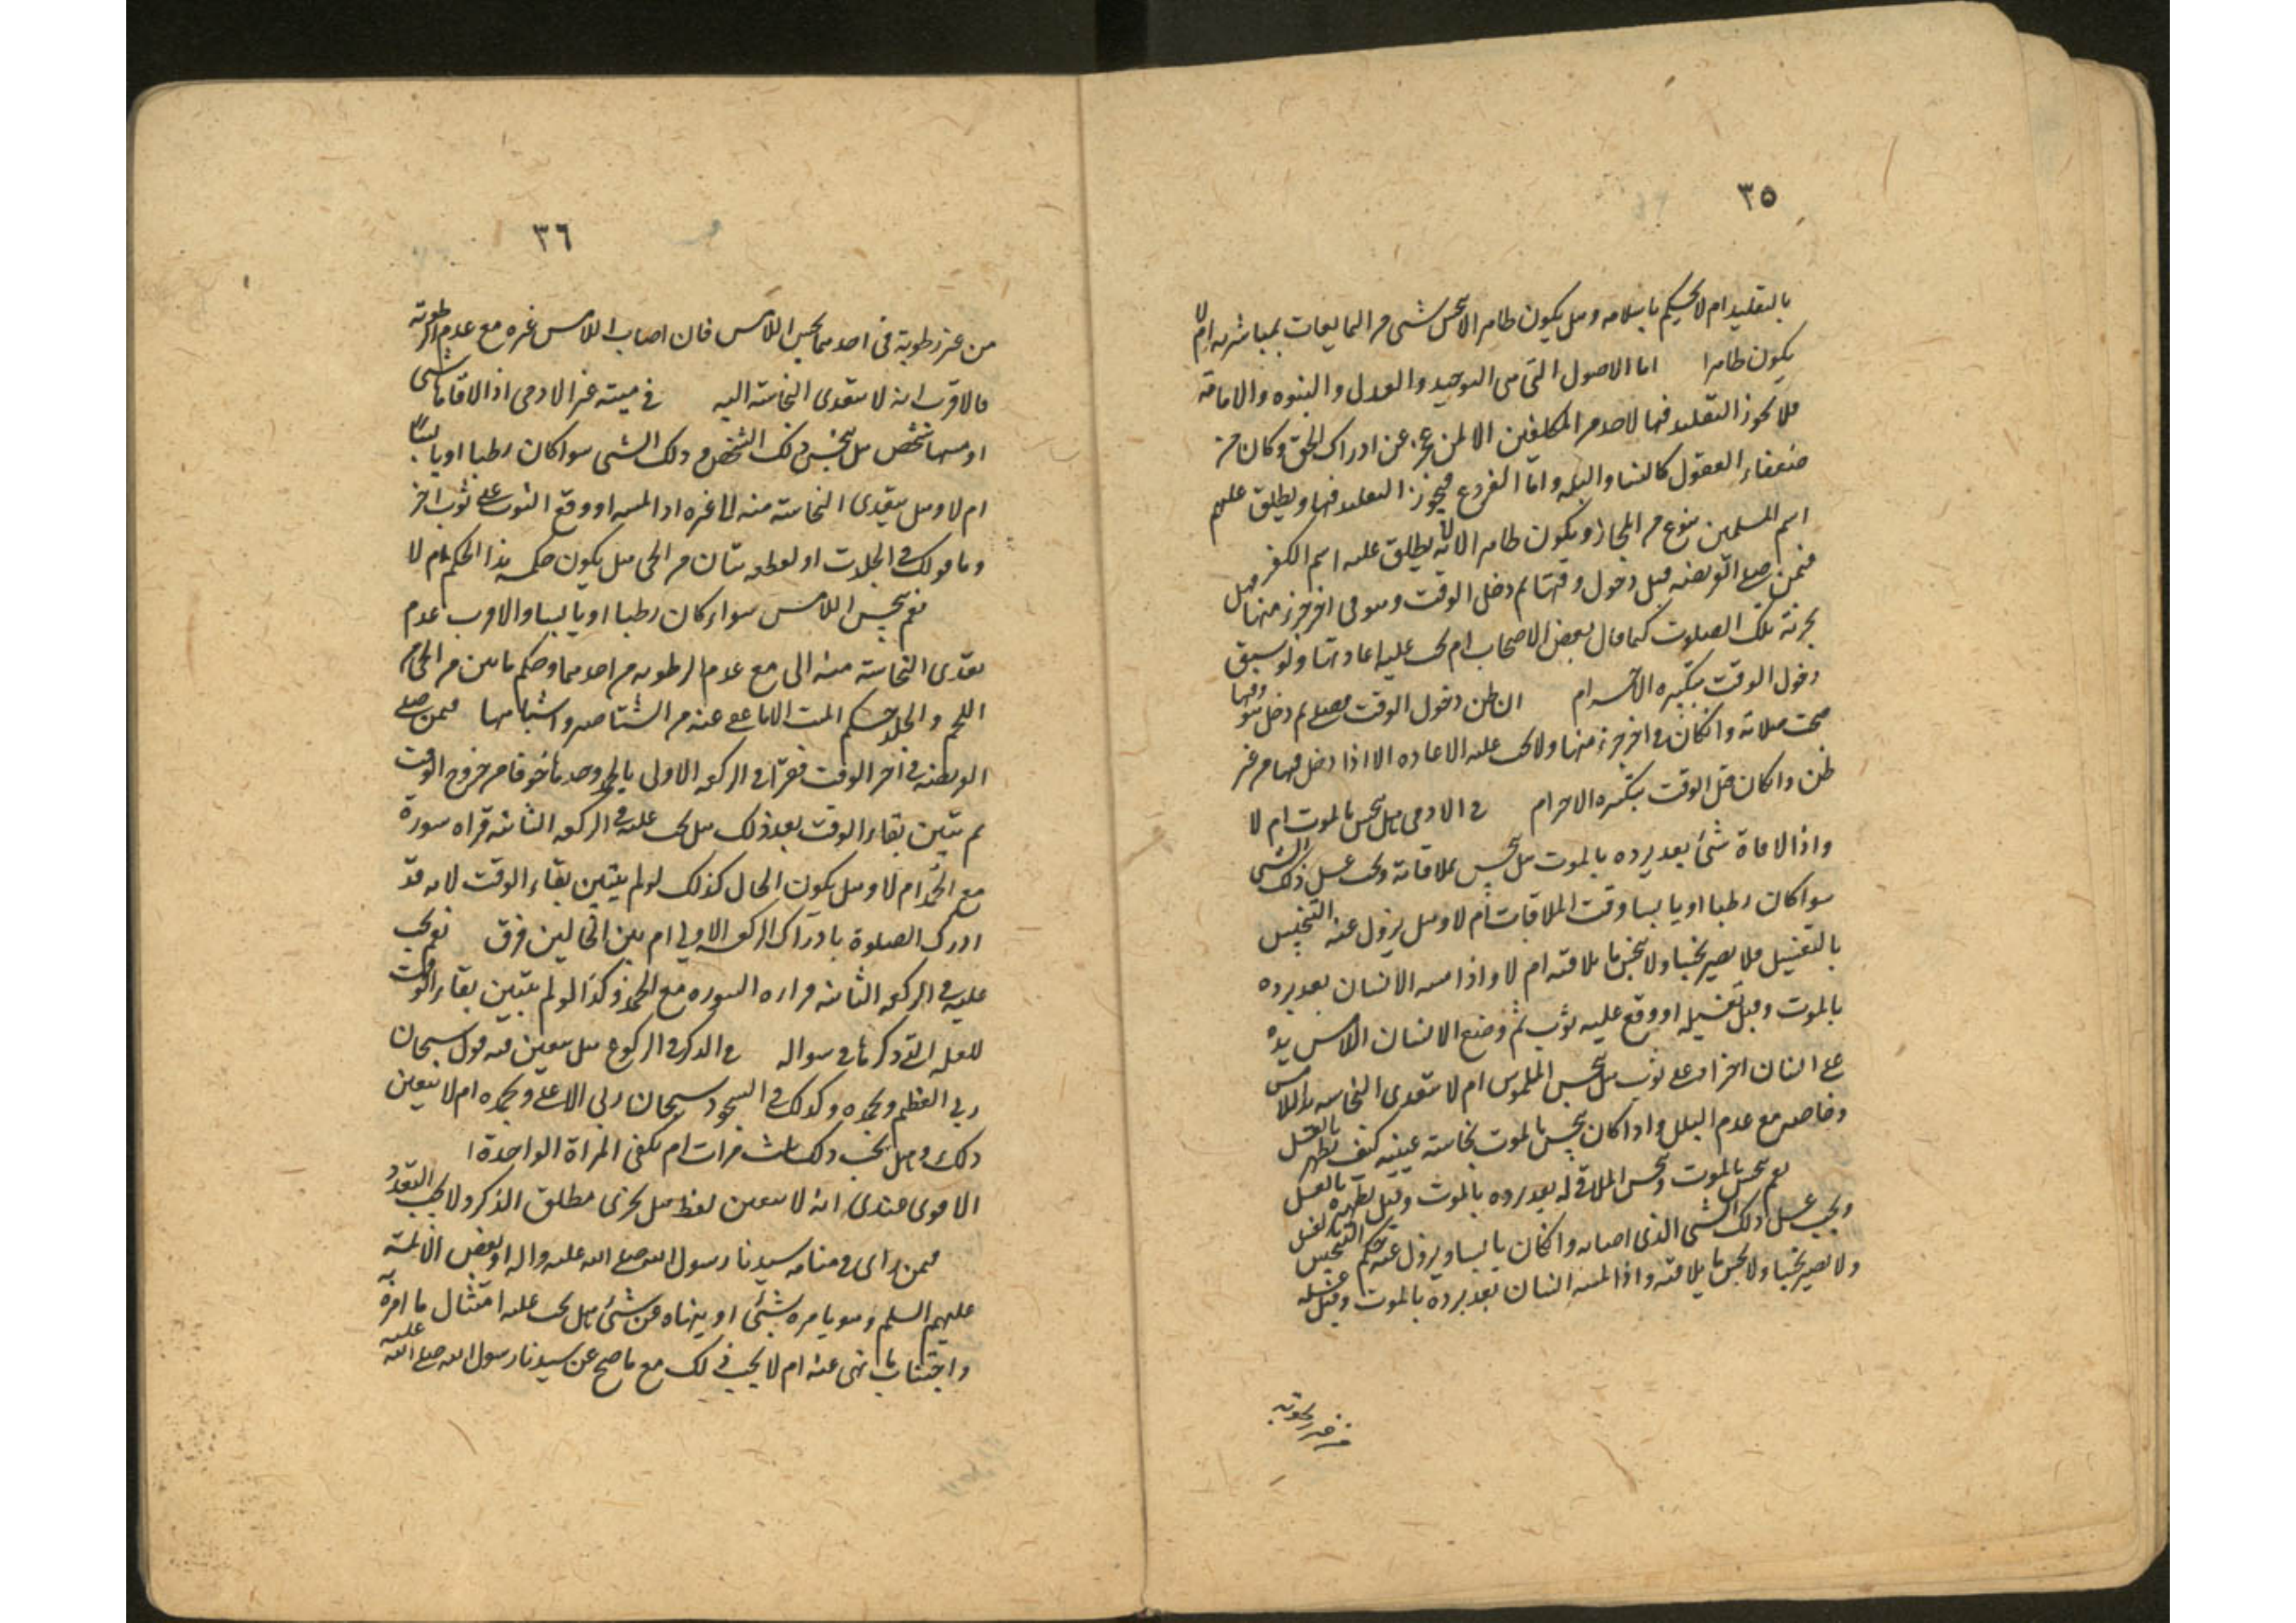 ٣٥
بالتقليد ام لا يحكم باسلامه وهل يكون طاهرا لا ينجس شئ من المايعات بمباشرته ام لا
يكون طاهرا اما الاصول التي هي التوحيد والعدل والنبوه والامامة
فلا يجوز التقليد فيها لاحد من المكلفين الا لمن عجز عن ادراك الحق وكان من
ضعفاء العقول كالنسا والبله واما الفروع فيجوز التقليد فيها ويطلق عليهم
اسم المسلمين بنوع من المجاز ويكون طاهرا لانه لا يطلق عليه اسم الكفر
فيمن صلى الفريضه قبل دخول وقتها ثم دخل الوقت وهو في اخر جزء منها فهل
يجزئه تلك الصلوة كما قال بعض الاصحاب ام يجب عليه اعادتها ولو سبق
دخول الوقت بتكبيره الاحرام ان ظن دخول الوقت فصلى ثم دخل وهو فيها
صحت صلاته وان كان في اخر جزء منها ولا يجب عليه الاعاده الا اذا دخل فيها من غير
ظن وان كان قبل الوقت بتكبيره الاحرام في الادمي هل ينجس بالموت ام لا
واذا لاقاه شئ بعد برده بالموت هل ينجس بملاقاته ويجب غسل ذلك الشئ
سوا كان رطبا او يابسا وقت الملاقات ام لا وهل يزول عنه التنجيس
بالتغسيل فلا يصير نجسا ولا ينجس ما يلاقيه ام لا واذا مسه الانسان بعد برده
بالموت وقبل تغسيله او وقع عليه ثوب ثم وضع الانسان اللامس يده
على انسان اخر او على ثوب هل ينجس الملموس ام لا يتعدى النجاسه اللامس
وخاصه مع عدم البلل واذا كان ينجس بالموت نجاسة عينيه كيف يطهر بالغسل
نعم ينجس بالموت وينجس الملاقي له بعد برده بالموت وقبل تطهيره بالغسل
ويجب غسل ذلك الشئ الذي اصابه وان كان يابسا ويزول عنه حكم التنجيس بالغسل
ولا يصير نجسا ولا ينجس ما يلاقيه واذا لمسه انسان بعد برده بالموت وقبل غسله
من غير رطوبة
٣٦
من غير رطوبة في احدهما نجس اللامس فان اصاب اللامس غيره مع عدم الرطوبة
فالاقرب انه لا يتعدى النجاسة اليه في ميتة غير الادمي اذا لاقاها شئ
او مسها شخص هل ينجس ذلك الشخص وذلك الشئ سوا كان رطبا او يابسا
ام لا وهل يتعدى النجاسة منه الى غيره اذا لمسه او وقع الثوب على ثوب اخر
وما قولك في الجلدت او لعظه بتان من الحي هل يكون حكمه هذا الحكم ام لا
نعم ينجس اللامس سواء كان رطبا او يابسا والاقرب عدم
تعدى النجاسة منه الى مع عدم الرطوبه من احدهما وحكم ما بين من الحي من
اللحم والجلد حكم الميت الا ما عفي عنه من واشباهها فيمن صلى
الفريضه في اخر الوقت فقرأ في الركعه الاولى بالحمد وحدها خوفا من خروج الوقت
ثم تبين بقاء الوقت بعد ذلك هل يجب عليه في الركعه الثانيه قراءه سورة
مع الحمد ام لا وهل يكون الحال كذلك لو لم يتبين بقاء الوقت لانه قد
ادرك الصلوة بادراك الركعه الاولى ام بين الحالين فرق نعم يجب
عليه في الركعه الثانيه قراءه السوره مع الحمد وكذا لو لم يتبين بقاء الوقت
للعله التي ذكرها في سواله في الذكر في الركوع هل يتعين فيه قول سبحان
ربي العظيم وبحمده وكذلك في السجود سبحان ربي الاعلى وبحمده ام لا يتعين
ذلك وهل يجب ذلك ثلث مرات ام يكفي المراة الواحدة
الاقوى عندي انه لا يتعين لفظ بل يجزي مطلق الذكر ولا يجب التعدد
فيمن رأى في منامه سيدنا رسول الله صلى الله عليه واله او بعض الائمة
عليهم السلم وهو يامره بشئ او ينهاه عن شئ هل يجب عليه امتثال ما امره به
واجتناب ما نهى عنه ام لا يجب ذلك مع ما صح عن سيدنا رسول الله صلى الله عليه